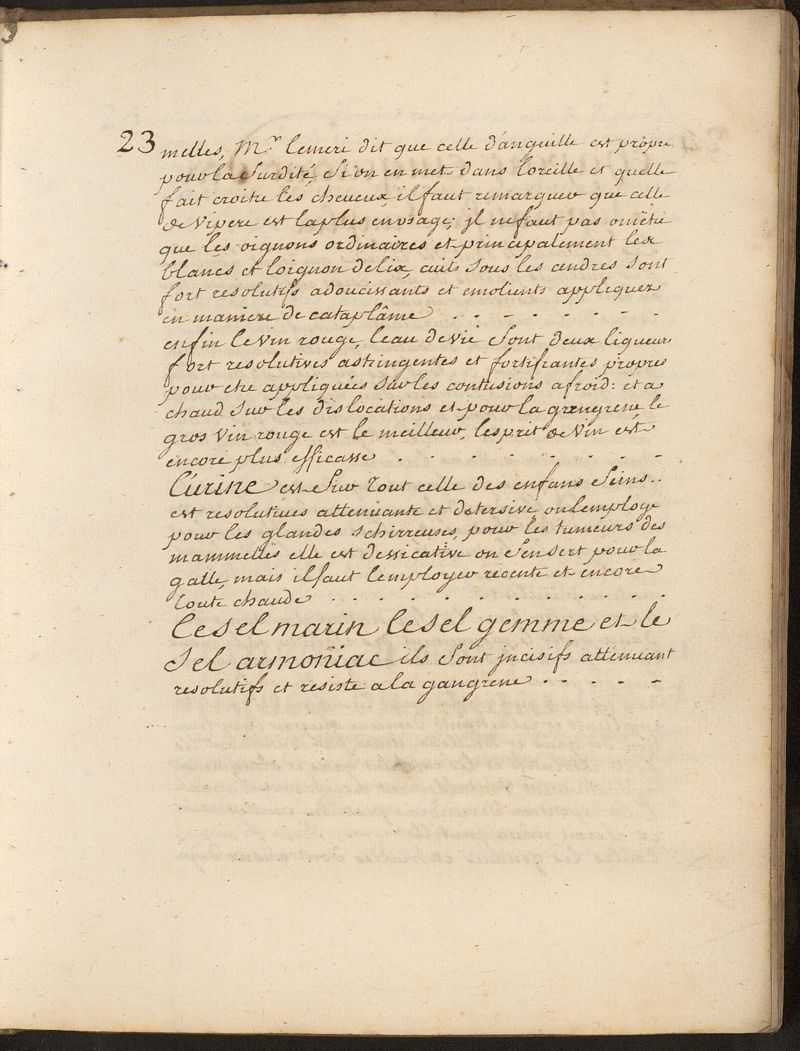 23 melles, Mr. lemeri dit que celle d'anguille est propre
pour la Surdité, Si on en met dans loreille et quelle
fait croitre les cheveux, il faut remarquer que celle
de vipere est la plus en usage; jl ne faut pas omêtre
que les oignons ordinaires et principalement les
blancs et loignon de lix, cuits sous les cendres sont
fort resolutifs adoucissants et emolients appliquez
en maniere de cataplâme . . - . - . - -
enfin le vin rouge, leau de vie sont deux liqueurs
fort resolutives astringentes et fortifiantes propres
pour etre appliquées sur les contusions a froid: et a
chaud sur les dislocations et pour la grengrene le
gros vin rouge est le meilleur, lesprit de vin est
encore plus efficasse . . . - . - -
L'urine est Sur tout celle des enfans Seins..
est resolutives attenuante et detersive, on lemploye
pour les glandes schirreuses, pour les tumeurs des
mammelles elle est dessicative on s'en sert pour la
galle, mais il faut lemployer recente et encore
toute chaude . . . . . . . . . . .
Le sel marin le sel gemme et le
sel armoniac ils sont jncisifs attenuant
resolutifs et resiste a la gangrene . - . - -